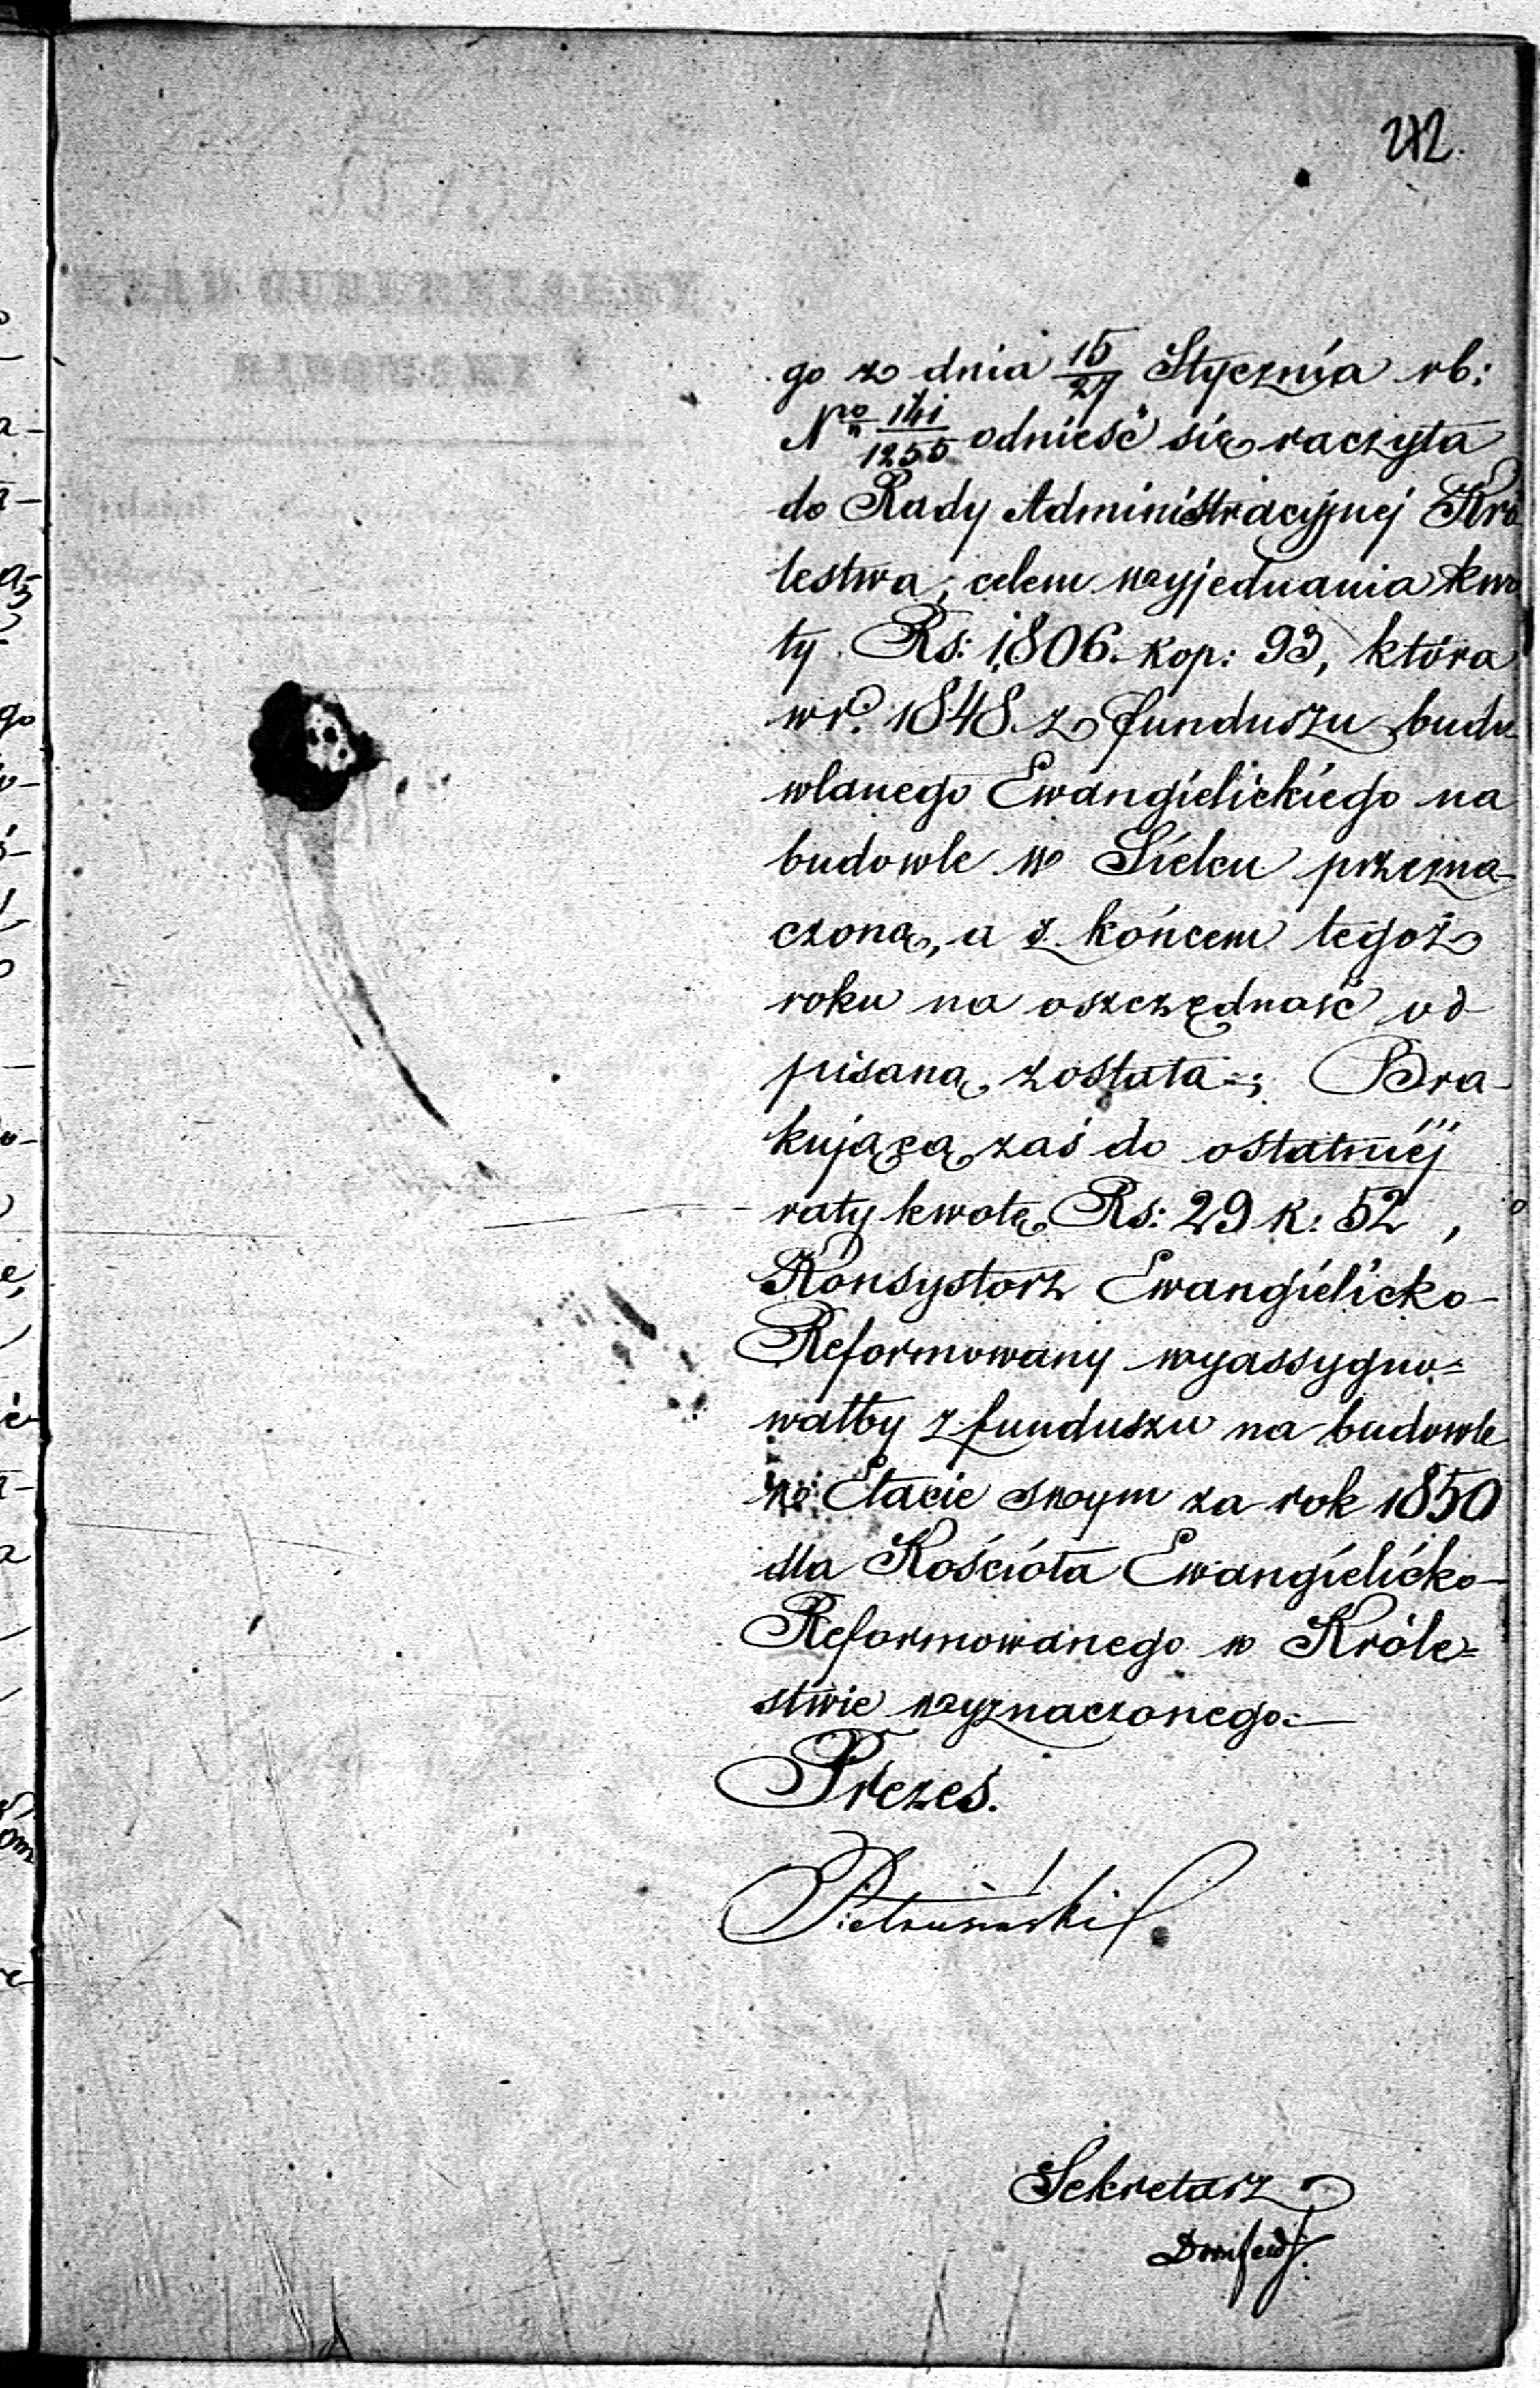 212.
go z dnia 15/27 Stycznia rb:
Nro 141/1255 odnieść się raczyła
do Rady Administracyjnej Kró
lestwa, celem wyjednania kwo
ty Rs: 1,806. kop: 93, która
wr. 1848 z funduszu budo-
wlanego Ewangielickiego na
budowle w Sielcu przezna-
czoną, a z końcem tegoż
roku na oszczędność od-
pisaną została; Bra-
kującą zaś do ostatniéj
raty kwotę Rs: 29 k: 52,
Konsystorz Ewangielicko-
Reformowany wyassygno=
wałby z funduszu na budowle
w Etacie swoym za rok 1850
dla Kościoła Ewangielicko-
Reformowanego w Króle=
stwie wyznaczonego.—
Prezes.
Pietrusiński
Sekretarz